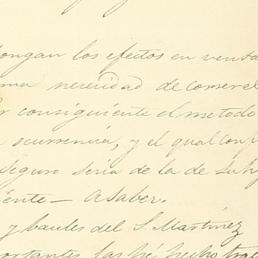 ongan los efectos en venta
ma necesidad de comer el
r consiguiente el metodo
ocurrencia, y el qual conf
seguro seria de la de
iente — A saber.
y baules del S. Martinez
portantes las hé hecho tra